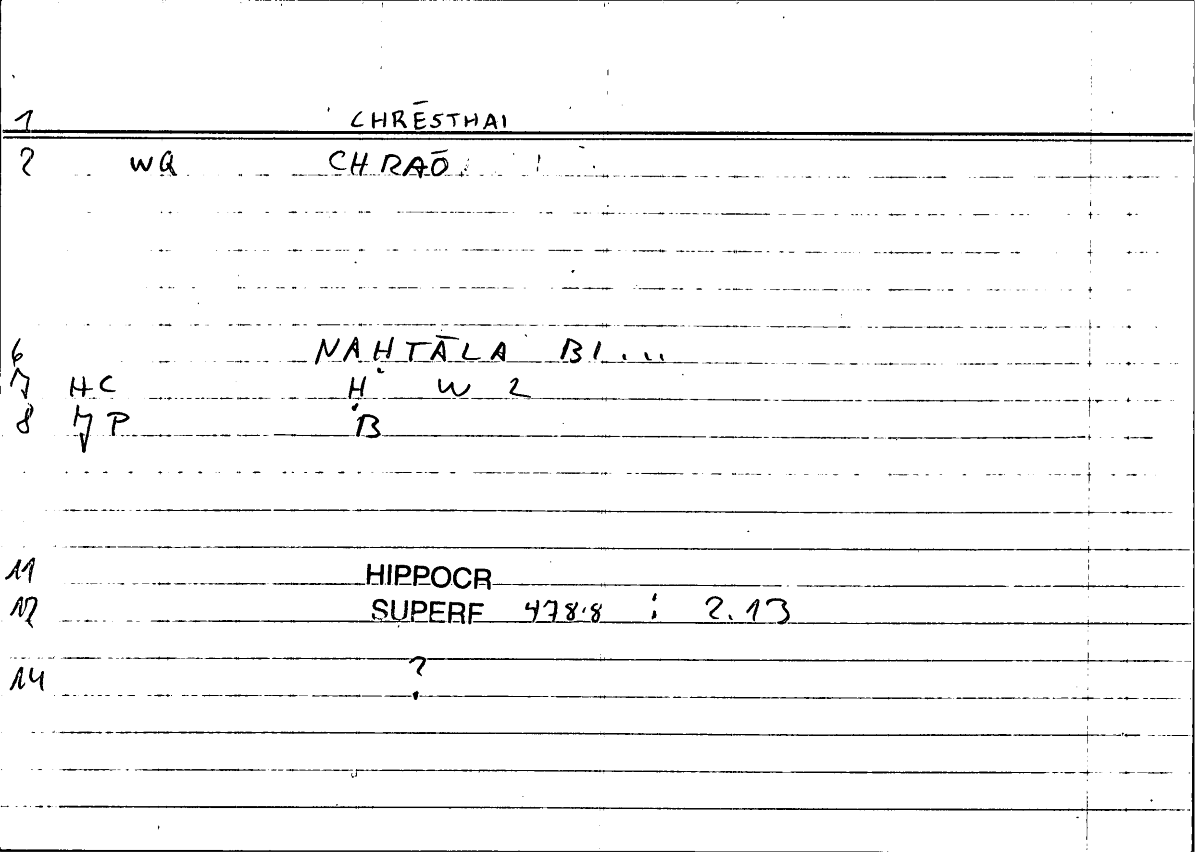 1 CHRĒSTHAI
2 WQ CHRAŌ
6 NAḤTĀLA BI...
7 HC Ḥ W 2
8 7 P B
11 HIPPOCR
12 SUPERF 478.8 : 2.13
14 ?